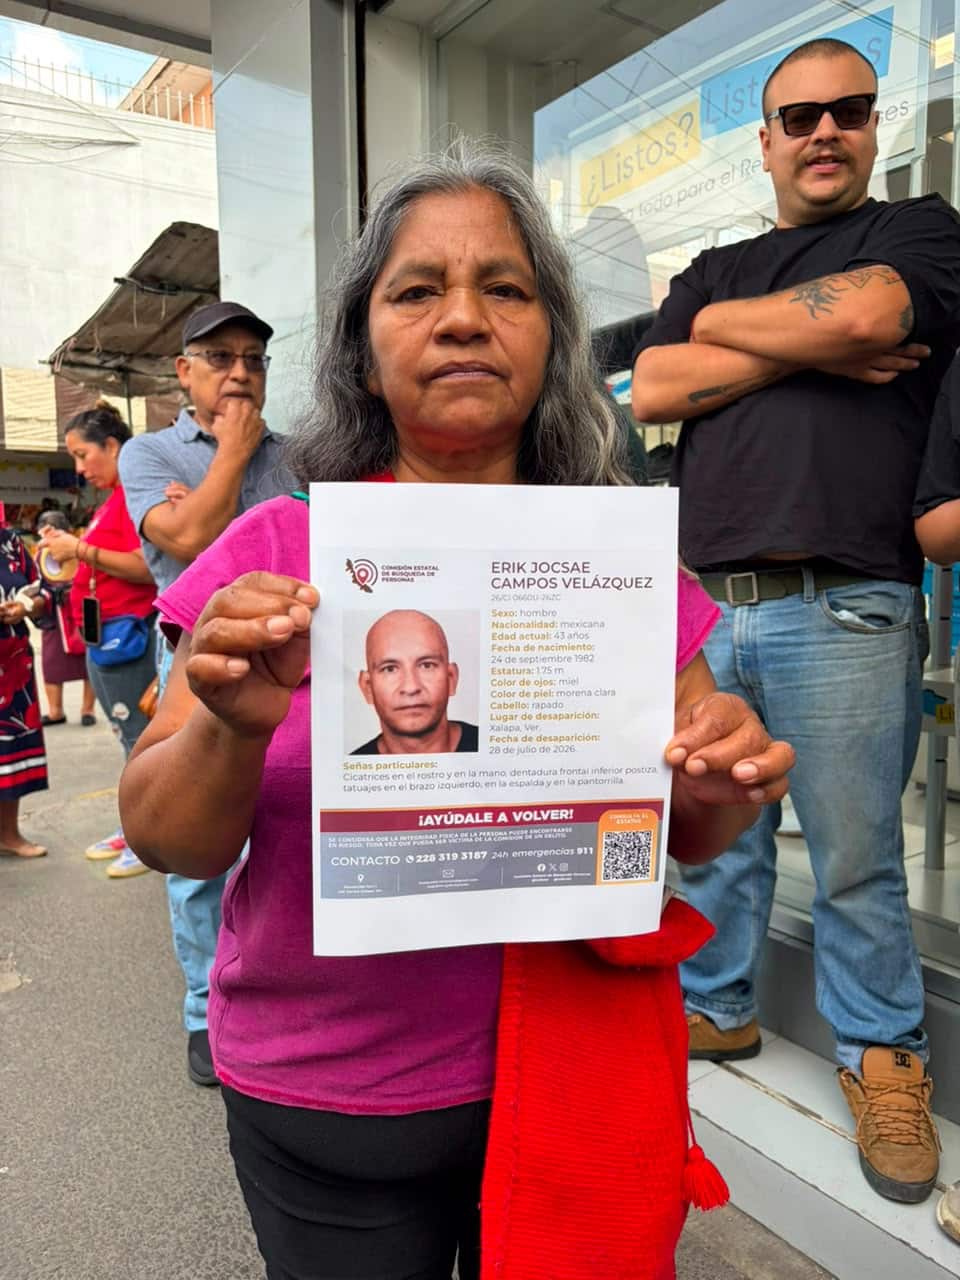 ¿Listos?
Listos
todo para el Re
ses
COMISIÓN ESTATAL
DE BÚSQUEDA DE
PERSONAS
ERIK JOCSAE
CAMPOS VELÁZQUEZ
26/CI 0660U-26ZC
Sexo: hombre
Nacionalidad: mexicana
Edad actual: 43 años
Fecha de nacimiento:
24 de septiembre 1982
Estatura: 1.75 m
Color de ojos: miel
Color de piel: morena clara
Cabello: rapado
Lugar de desaparición:
Xalapa, Ver.
Fecha de desaparición:
28 de julio de 2026.
Señas particulares:
Cicatrices en el rostro y en la mano, dentadura frontal inferior postiza,
tatuajes en el brazo izquierdo, en la espalda y en la pantorrilla.
¡AYÚDALE A VOLVER!
SE CONSIDERA QUE LA INTEGRIDAD FÍSICA DE LA PERSONA PUEDE ENCONTRARSE
EN RIESGO, TODA VEZ QUE PUEDA SER VÍCTIMA DE LA COMISIÓN DE UN DELITO.
CONTACTO 228 319 3187 24h emergencias 911
CONSULTA EL
ESTATUS